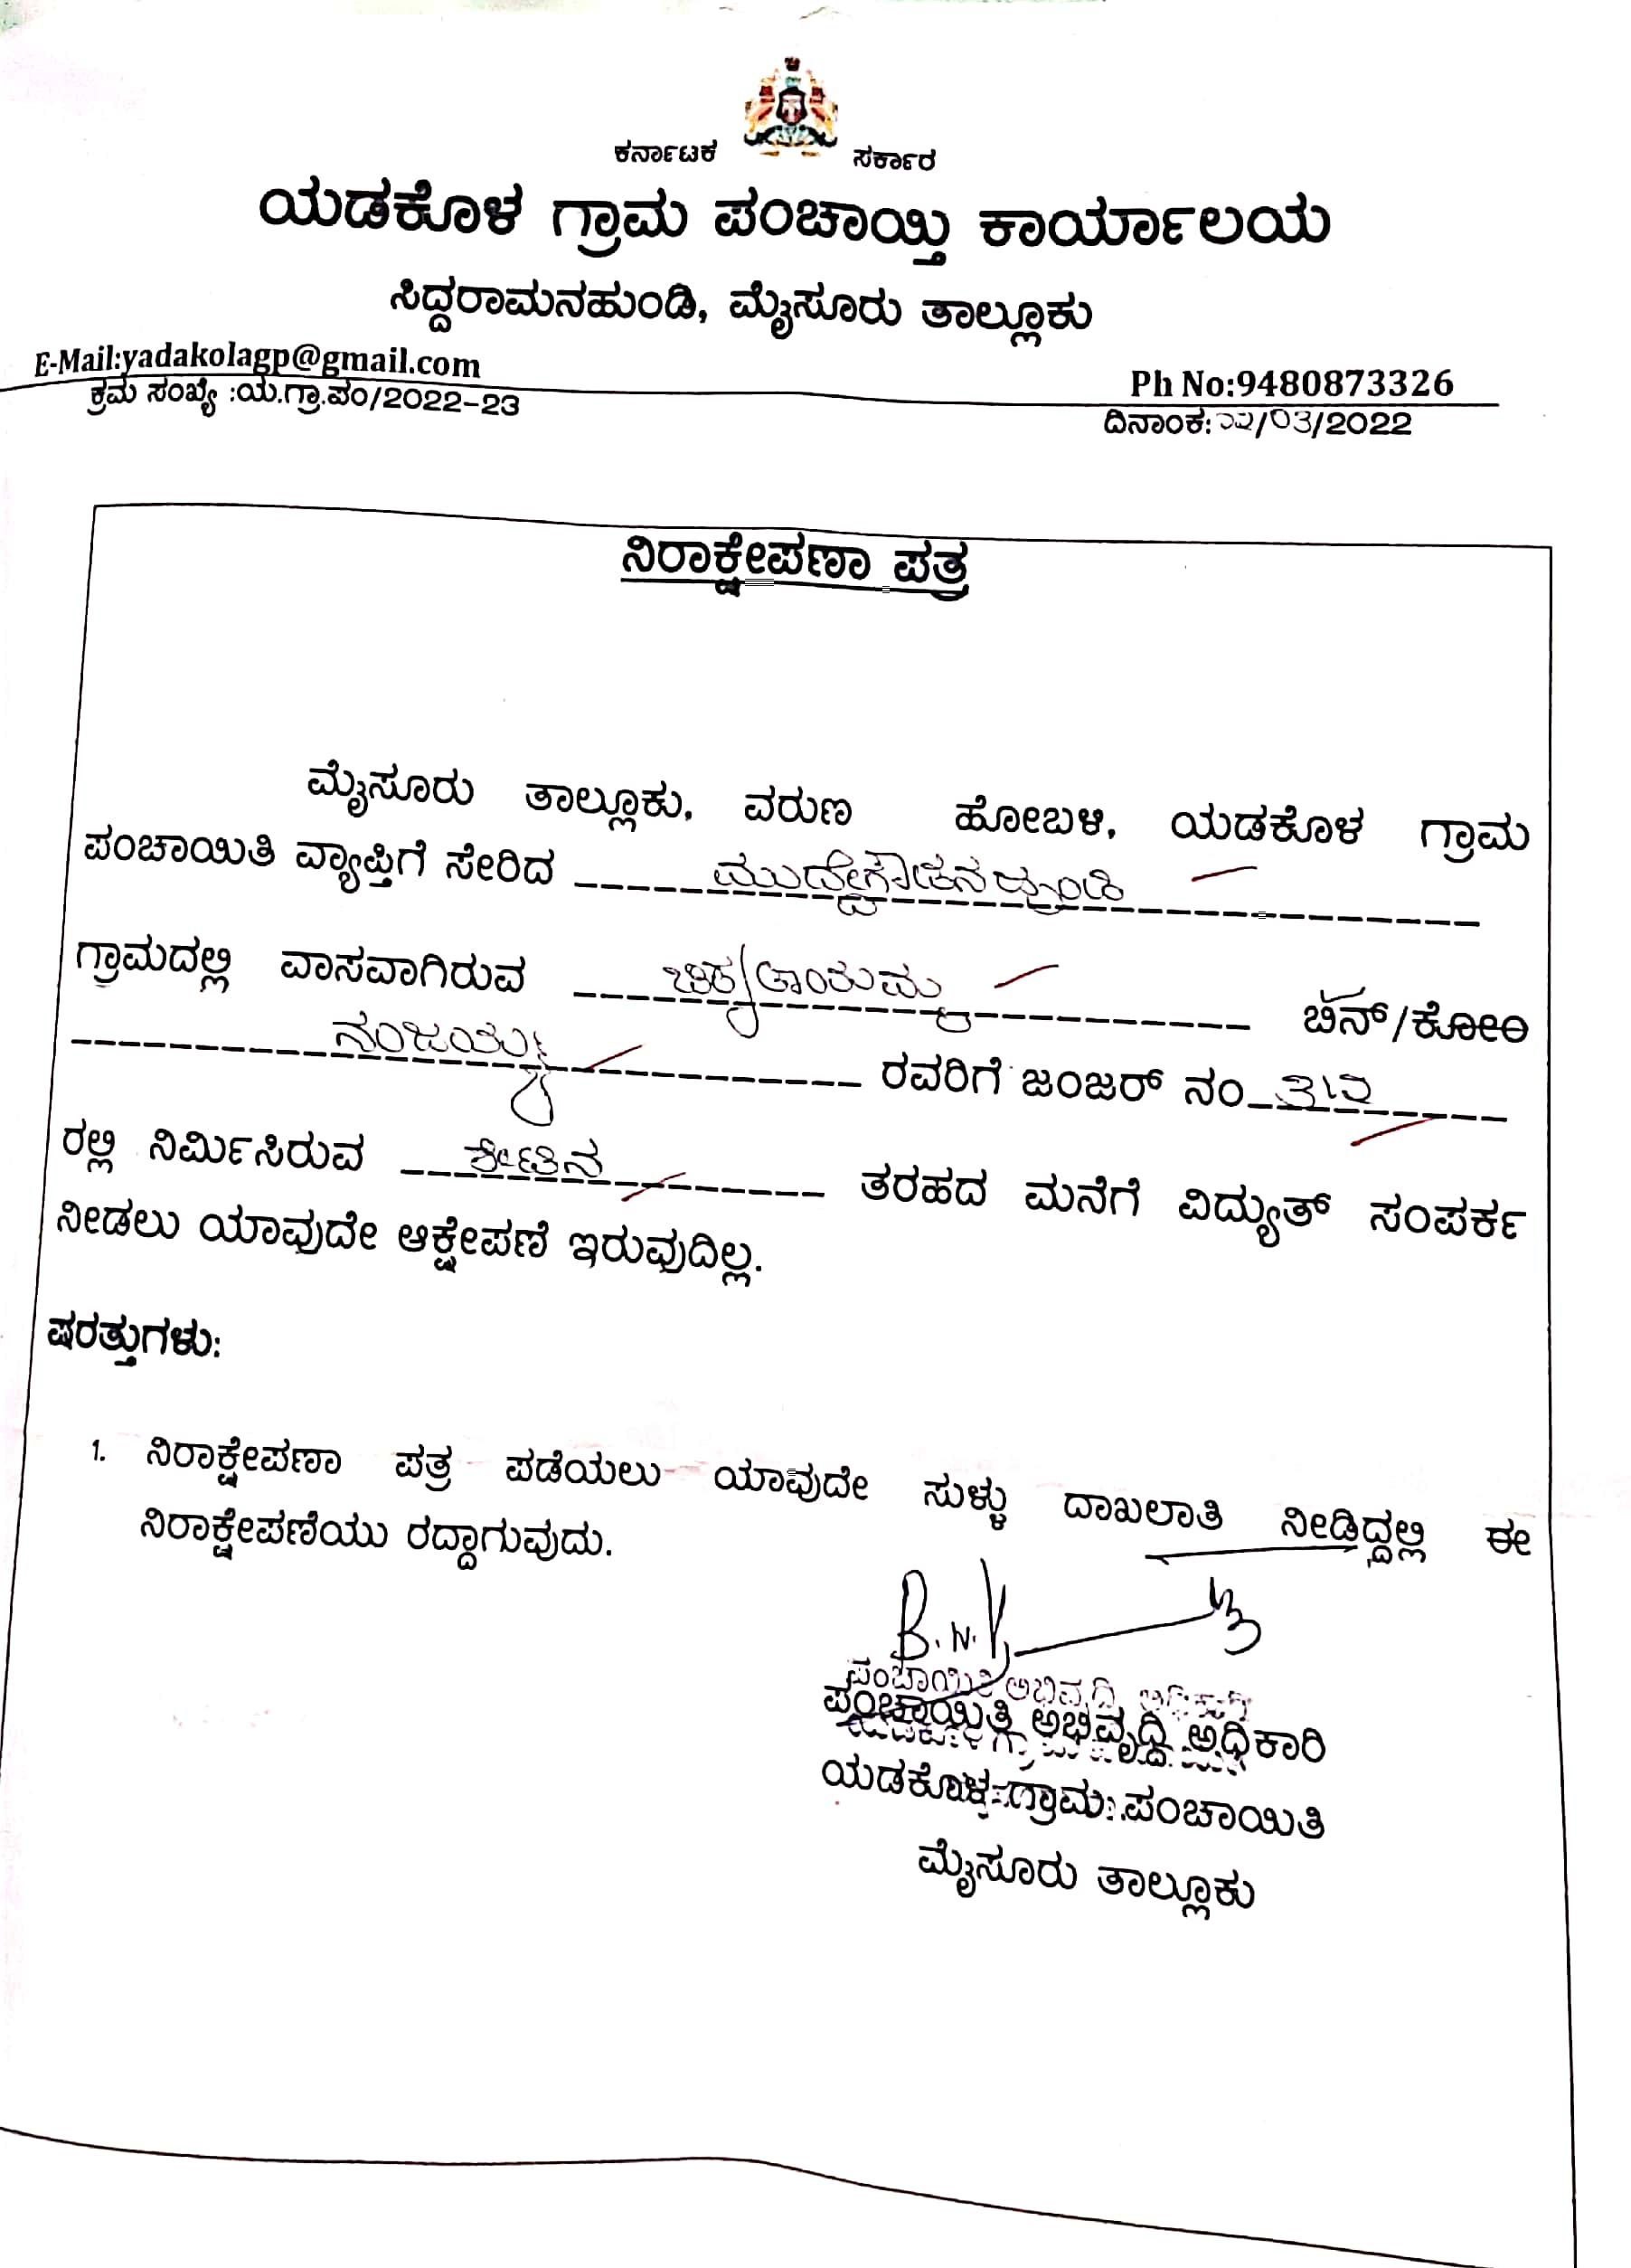 ಕರ್ನಾಟಕ ಸರ್ಕಾರ
ಯಡಕೊಳ ಗ್ರಾಮ ಪಂಚಾಯ್ತಿ ಕಾರ್ಯಾಲಯ
ಸಿದ್ದರಾಮನಹುಂಡಿ, ಮೈಸೂರು ತಾಲ್ಲೂಕು
E-Mail:yadakolagp@gmail.com Ph No:9480873326
ಕ್ರಮ ಸಂಖ್ಯೆ :ಯ.ಗ್ರಾ.ಪಂ/2022-23 ದಿನಾಂಕ: /03/2022
ನಿರಾಕ್ಷೇಪಣಾ ಪತ್ರ
ಮೈಸೂರು ತಾಲ್ಲೂಕು, ವರುಣ ಹೋಬಳಿ, ಯಡಕೊಳ ಗ್ರಾಮ
ಪಂಚಾಯಿತಿ ವ್ಯಾಪ್ತಿಗೆ ಸೇರಿದ ಮುದ್ದೇಗೌಡನಹುಂಡಿ
ಗ್ರಾಮದಲ್ಲಿ ವಾಸವಾಗಿರುವ ಚಿಕ್ಕತಾಯಮ್ಮ ಬಿನ್/ಕೋಂ
ನಂಜಯ್ಯ ರವರಿಗೆ ಜಂಜರ್ ನಂ ೩೧೨
ರಲ್ಲಿ ನಿರ್ಮಿಸಿರುವ ಶೀಟಿನ ತರಹದ ಮನೆಗೆ ವಿದ್ಯುತ್ ಸಂಪರ್ಕ
ನೀಡಲು ಯಾವುದೇ ಆಕ್ಷೇಪಣೆ ಇರುವುದಿಲ್ಲ.
ಷರತ್ತುಗಳು:
1. ನಿರಾಕ್ಷೇಪಣಾ ಪತ್ರ ಪಡೆಯಲು ಯಾವುದೇ ಸುಳ್ಳು ದಾಖಲಾತಿ ನೀಡಿದ್ದಲ್ಲಿ ಈ
ನಿರಾಕ್ಷೇಪಣೆಯು ರದ್ದಾಗುವುದು.
ಪಂಚಾಯಿತಿ ಅಭಿವೃದ್ಧಿ ಅಧಿಕಾರಿ
ಪಂಚಾಯಿತಿ ಅಭಿವೃದ್ಧಿ ಅಧಿಕಾರಿ
ಯಡಕೊಳ ಗ್ರಾಮ ಪಂಚಾಯಿತಿ
ಮೈಸೂರು ತಾಲ್ಲೂಕು